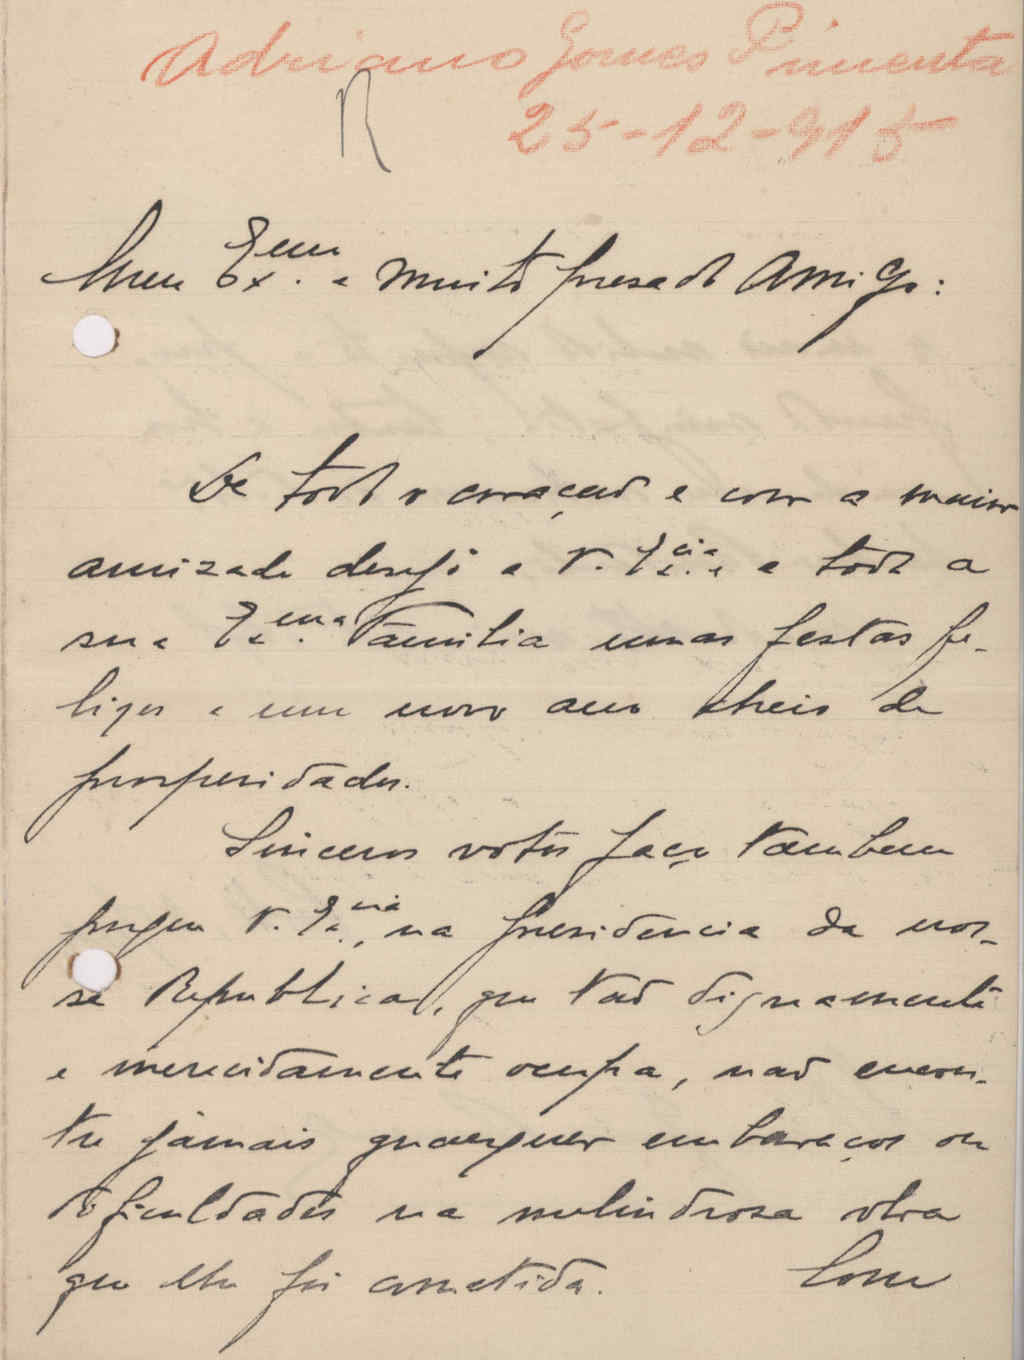 Adriano Gomes Pimenta
R
25-12-915
Meu Ex.mo e muito presado Amigo:
De todo o coração e com a maior
amizade desejo a V. Ex.cia e a toda a
sua Ex.ma Familia umas festas fe-
lizes e um novo ano cheio de
prosperidades.
Sinceros votos faço tambem
porque V. Ex.cia, na Presidencia da nos-
sa Republica, que tão dignamente
e merecidamente ocupa, não encon-
tre jámais quaesquer embaraços ou
dificuldades na melindrosa obra
que lhe foi cometida. Com